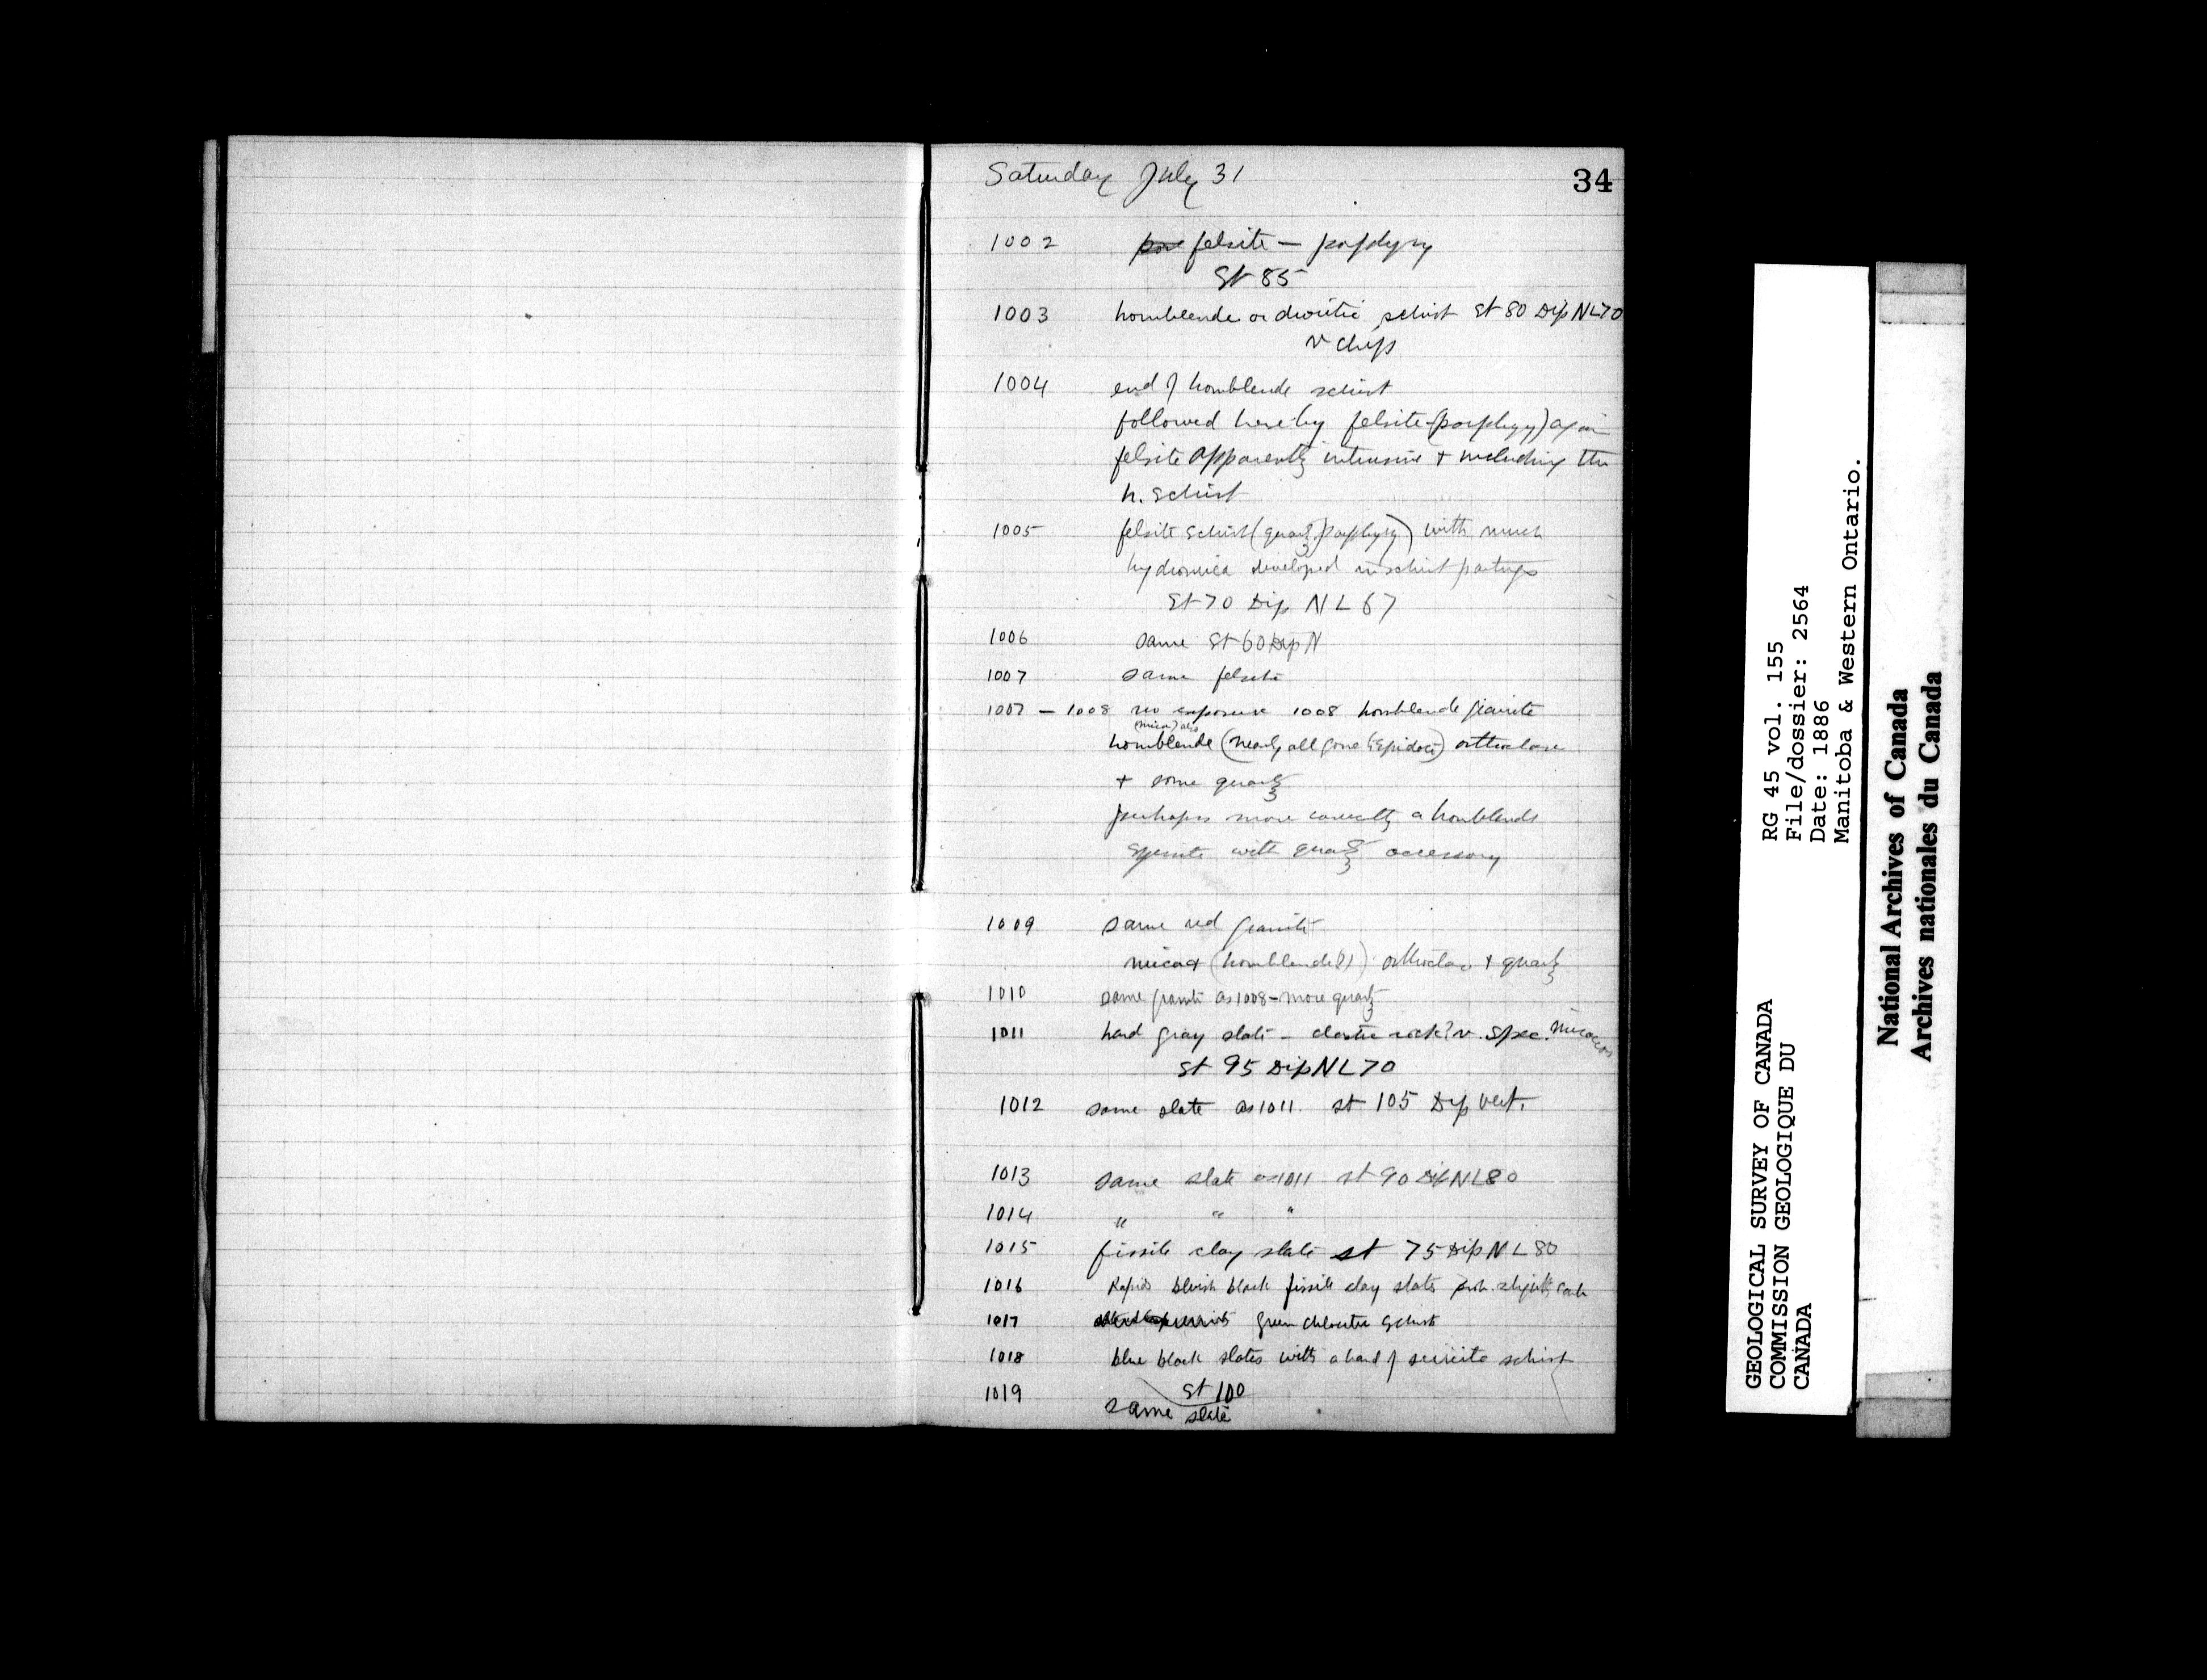 Saturday July 31
34
1002 felsite — porphyry
St 85
1003 hornblende or dioritic schist St 80 Dip N L 70
v chips
1004 end of hornblende schist
followed here by felsite (porphyry) again
felsite apparently intrusive + including the
h. schist
1005 felsite schist (quartz porphyry) with much
hydromica developed in schist partings
St 70 Dip N L 67
1006 same St 60 Dip N
1007 same felsite
1007 — 1008 no exposure 1008 hornblende granite
(mica) also
hornblende (nearly all gone to epidote) orthoclase
+ some quartz
perhaps more correctly a hornblende
syenite with quartz accessory
1009 same red granite
mica + (hornblende (?)) orthoclase + quartz
1010 same granite as 1008 – more quartz
1011 hard gray slate – clastic rock? v. Spec. micaceous
St 95 Dip N L 70
1012 same slate as 1011. st 105 Dip vert.
1013 same slate as 1011 st 90 Dip N L 80
1014 " " "
1015 fissile clay slate st 75 Dip N L 80
1016 Rapids bluish black fissile clay slates slightly carb
1017 green chloritic schist
1018 blue black slates with a band of sericite schist
St 100
1019 same slate
GEOLOGICAL SURVEY OF CANADA
COMMISSION GEOLOGIQUE DU
CANADA
RG 45 vol. 155
File/dossier: 2564
Date: 1886
Manitoba & Western Ontario.
National Archives of Canada
Archives nationales du Canada